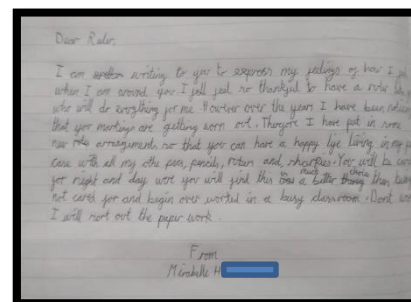 Dear Ruler,
I am writing to you to express my feelings of how I
when I am around you I feel so thankful to have a ruler
who will do everything for me. However over the years I have been
that your markings are getting worn out. Therefore I have put in some
new arrangements so that you can have a happy life living in my
case with all my other pens, pencils, rubers and sharpies. You will be
for night and day were you will find this is a much better than
not cared for and begin over worked in a busy classroom. Dont
I will sort out the paper work.
From
Mirabelle H